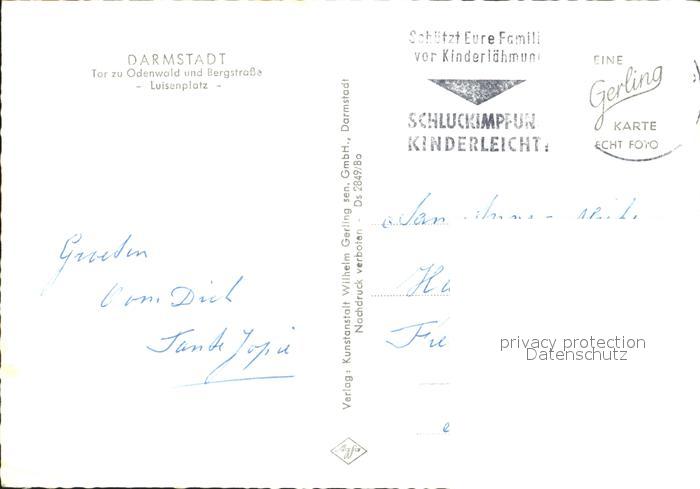 DARMSTADT
Tor zu Odenwald und Bergstraße
- Luisenplatz -
Schützt Eure Famili
vor Kinderlähmun
SCHLUCKIMPFUN
KINDERLEICHT!
EINE
Gerling
KARTE
ECHT FOTO
Verlag: Kunstanstalt Wilhelm Gerling sen. GmbH., Darmstadt
Nachdruck verboten - Ds 2849/8a
Groeten
Tante Jopie
Ha
Fre
privacy protection
Datenschutz
e
Agfa